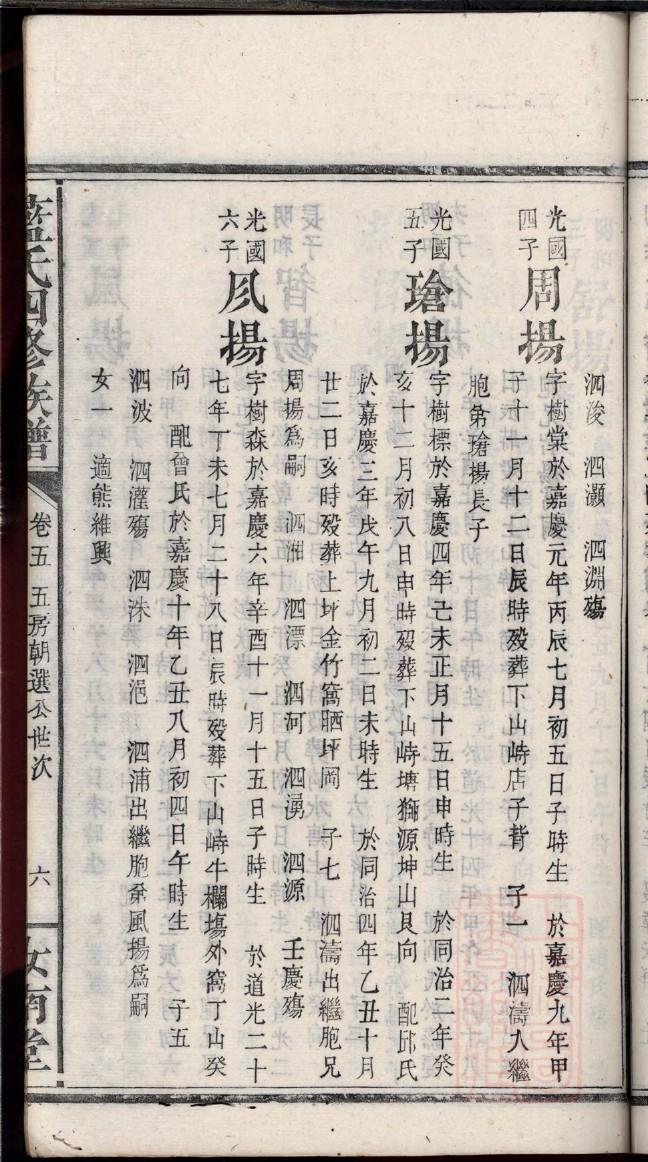 泗浚 泗灝 泗淵殤
光國四子 周揚 字樹棠於嘉慶元年丙辰七月初五日子時生 於嘉慶九年甲
子十一月十二日辰時歿葬下山峙店子背 子一 泗濤入繼
胞弟瑲揚長子
光國五子 瑲揚 字樹標於嘉慶四年己未正月十五日申時生 於同治二年癸
亥十二月初八日申時歿葬下山峙塘獅源坤山艮向 配邱氏
於嘉慶三年戊午九月初二日未時生 於同治四年乙丑十月
廿二日亥時歿葬上坪金竹窩晒坪岡 子七 泗濤出繼胞兄
周揚爲嗣 泗湘 泗漂 泗河 泗湧 泗源 壬慶殤
光國六子 夙揚 字樹森於嘉慶六年辛酉十一月十五日子時生 於道光二十
七年丁未七月二十八日辰時歿葬下山峙牛欄塲外窩丁山癸
向 配曾氏於嘉慶十年乙丑八月初四日午時生 子五
泗波 泗灌殤 泗洙 泗浥 泗浦出繼胞弟風揚爲嗣
女一 適熊維興
藍氏四修族譜 卷五 五房朝選公世次 六 汝南堂